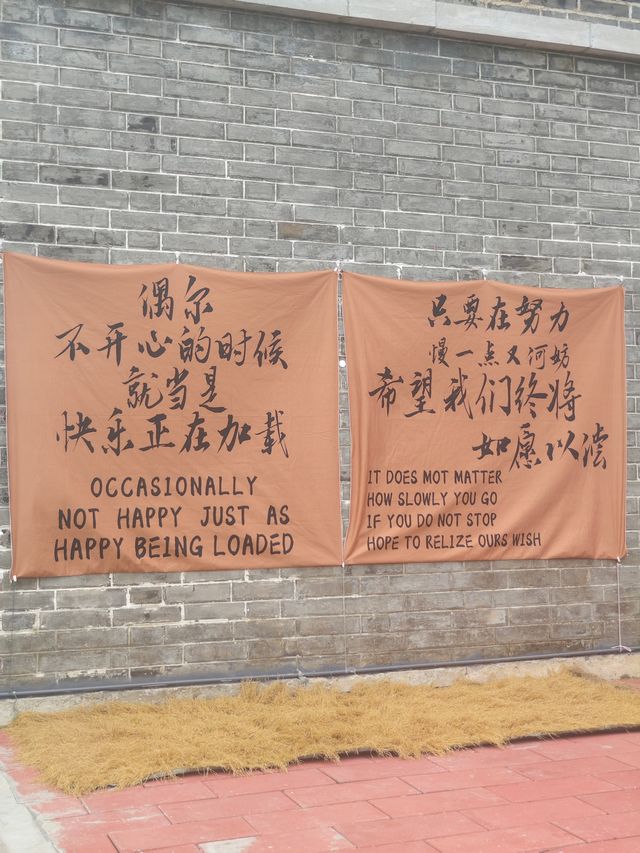 偶尔
不开心的时候
就当是
快乐正在加载
OCCASIONALLY
NOT HAPPY JUST AS
HAPPY BEING LOADED
只要在努力
慢一点又何妨
希望我们终将
如愿以偿
IT DOES MOT MATTER
HOW SLOWLY YOU GO
IF YOU DO NOT STOP
HOPE TO RELIZE OURS WISH